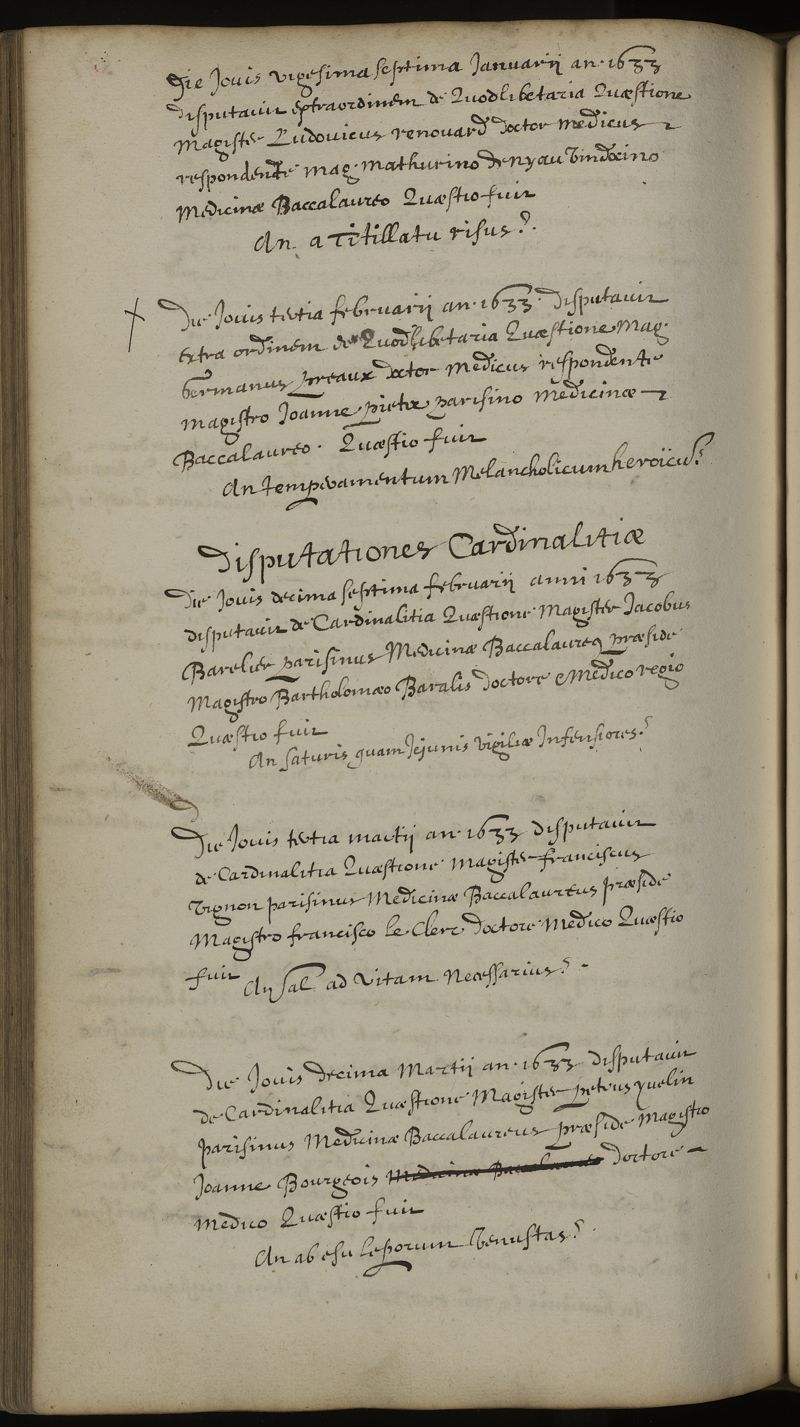 Die Jovis vigesima septima Januarii an. 1633
disputavit extraordinem de Quodlibetaria Quæstione
Magister Ludovicus renouard doctor medicus
respondente Mag. Mathurino denyau Vindocino
Medicinæ Baccalaureo Quæstio fuit
An a Titillatu risus?
Die Jovis tertia februarii an. 1633. Disputavit
extra ordinem de Quodlibetaria Quæstione Mag.
Germanus preaux doctor Medicus respondente
Magistro Joanne pietre parisino Medicinæ
Baccalaureo. Quæstio fuit
An temperamentum Melancholicum heroïcu?
Disputationes Cardinalitiæ
Die Jovis decima septima februarii anni 1633
disputavit de Cardinalitia Quæstione Magister Jacobus
Barelier parisinus Medicinæ Baccalaureq præside
Magistro Bartholomæo Baralis doctore & Medico regio
Quæstio fuit
An saturis quam Jejunis vigiliæ Infensiores?
Die Jovis tertia martii an. 1633 disputavit
de Cardinalitia Quæstione Magister franciscus
Vignon parisinus Medicinæ Baccalaureus præside
Magistro francisco le Clerc doctore Medico Quæstio
fuit An Sal ad vitam Necessarius?
Die Jovis decima Martii an. 1633 disputavit
de Cardinalitia Quæstione Magister petrus yvelin
parisinus Medicinæ Baccalaureus præside Magistro
Joanne Bourgeois doctore
Medico Quæstio fuit
An ab esu leporum Venustas?